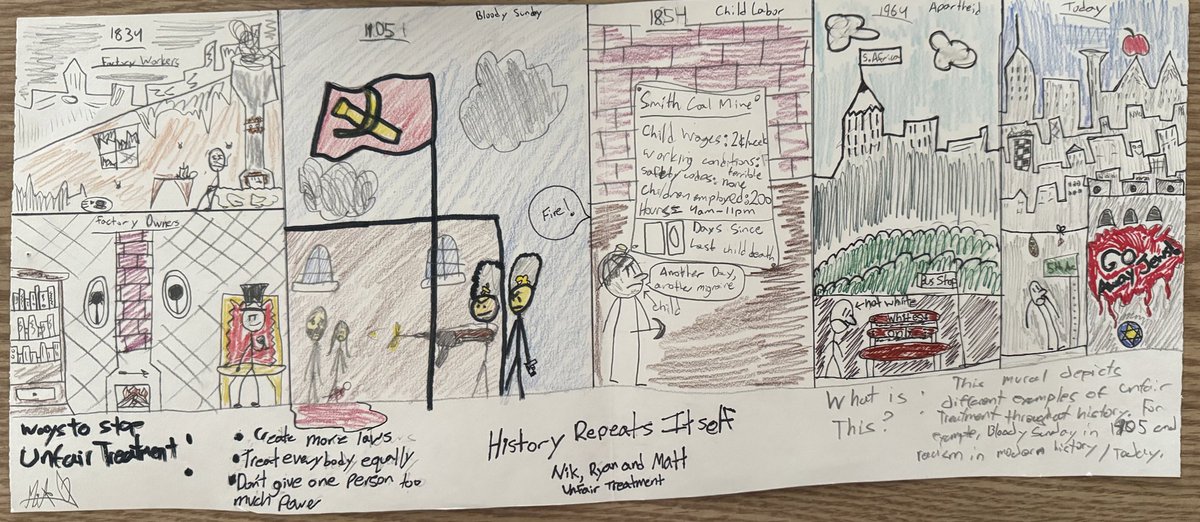 1834
Factory Workers
Factory Owners
1905
Bloody Sunday
Fire!
1854
Child Labor
Smith Coal Mine
Child Wages: 2¢/week
Working conditions:
terrible
safety codes: none
Children employed: 200
Hours 4am-11pm
0 Days Since
Last child death
Another Day,
another migraine
child
1964 Apartheid
S. Africa
Bus Stop
not white
Whites
Only
Today
GO
Away Jews
Ways to stop
Unfair Treatment!
• Create more laws
• Treat everybody equally
• Don't give one person too
much power
History Repeats Itself
Nik, Ryan and Matt
Unfair Treatment
What is
This?
This mural depicts
different examples of Unfair
Treatment throughout history. For
example, Bloody Sunday in 1905 and
racism in modern history/Today.